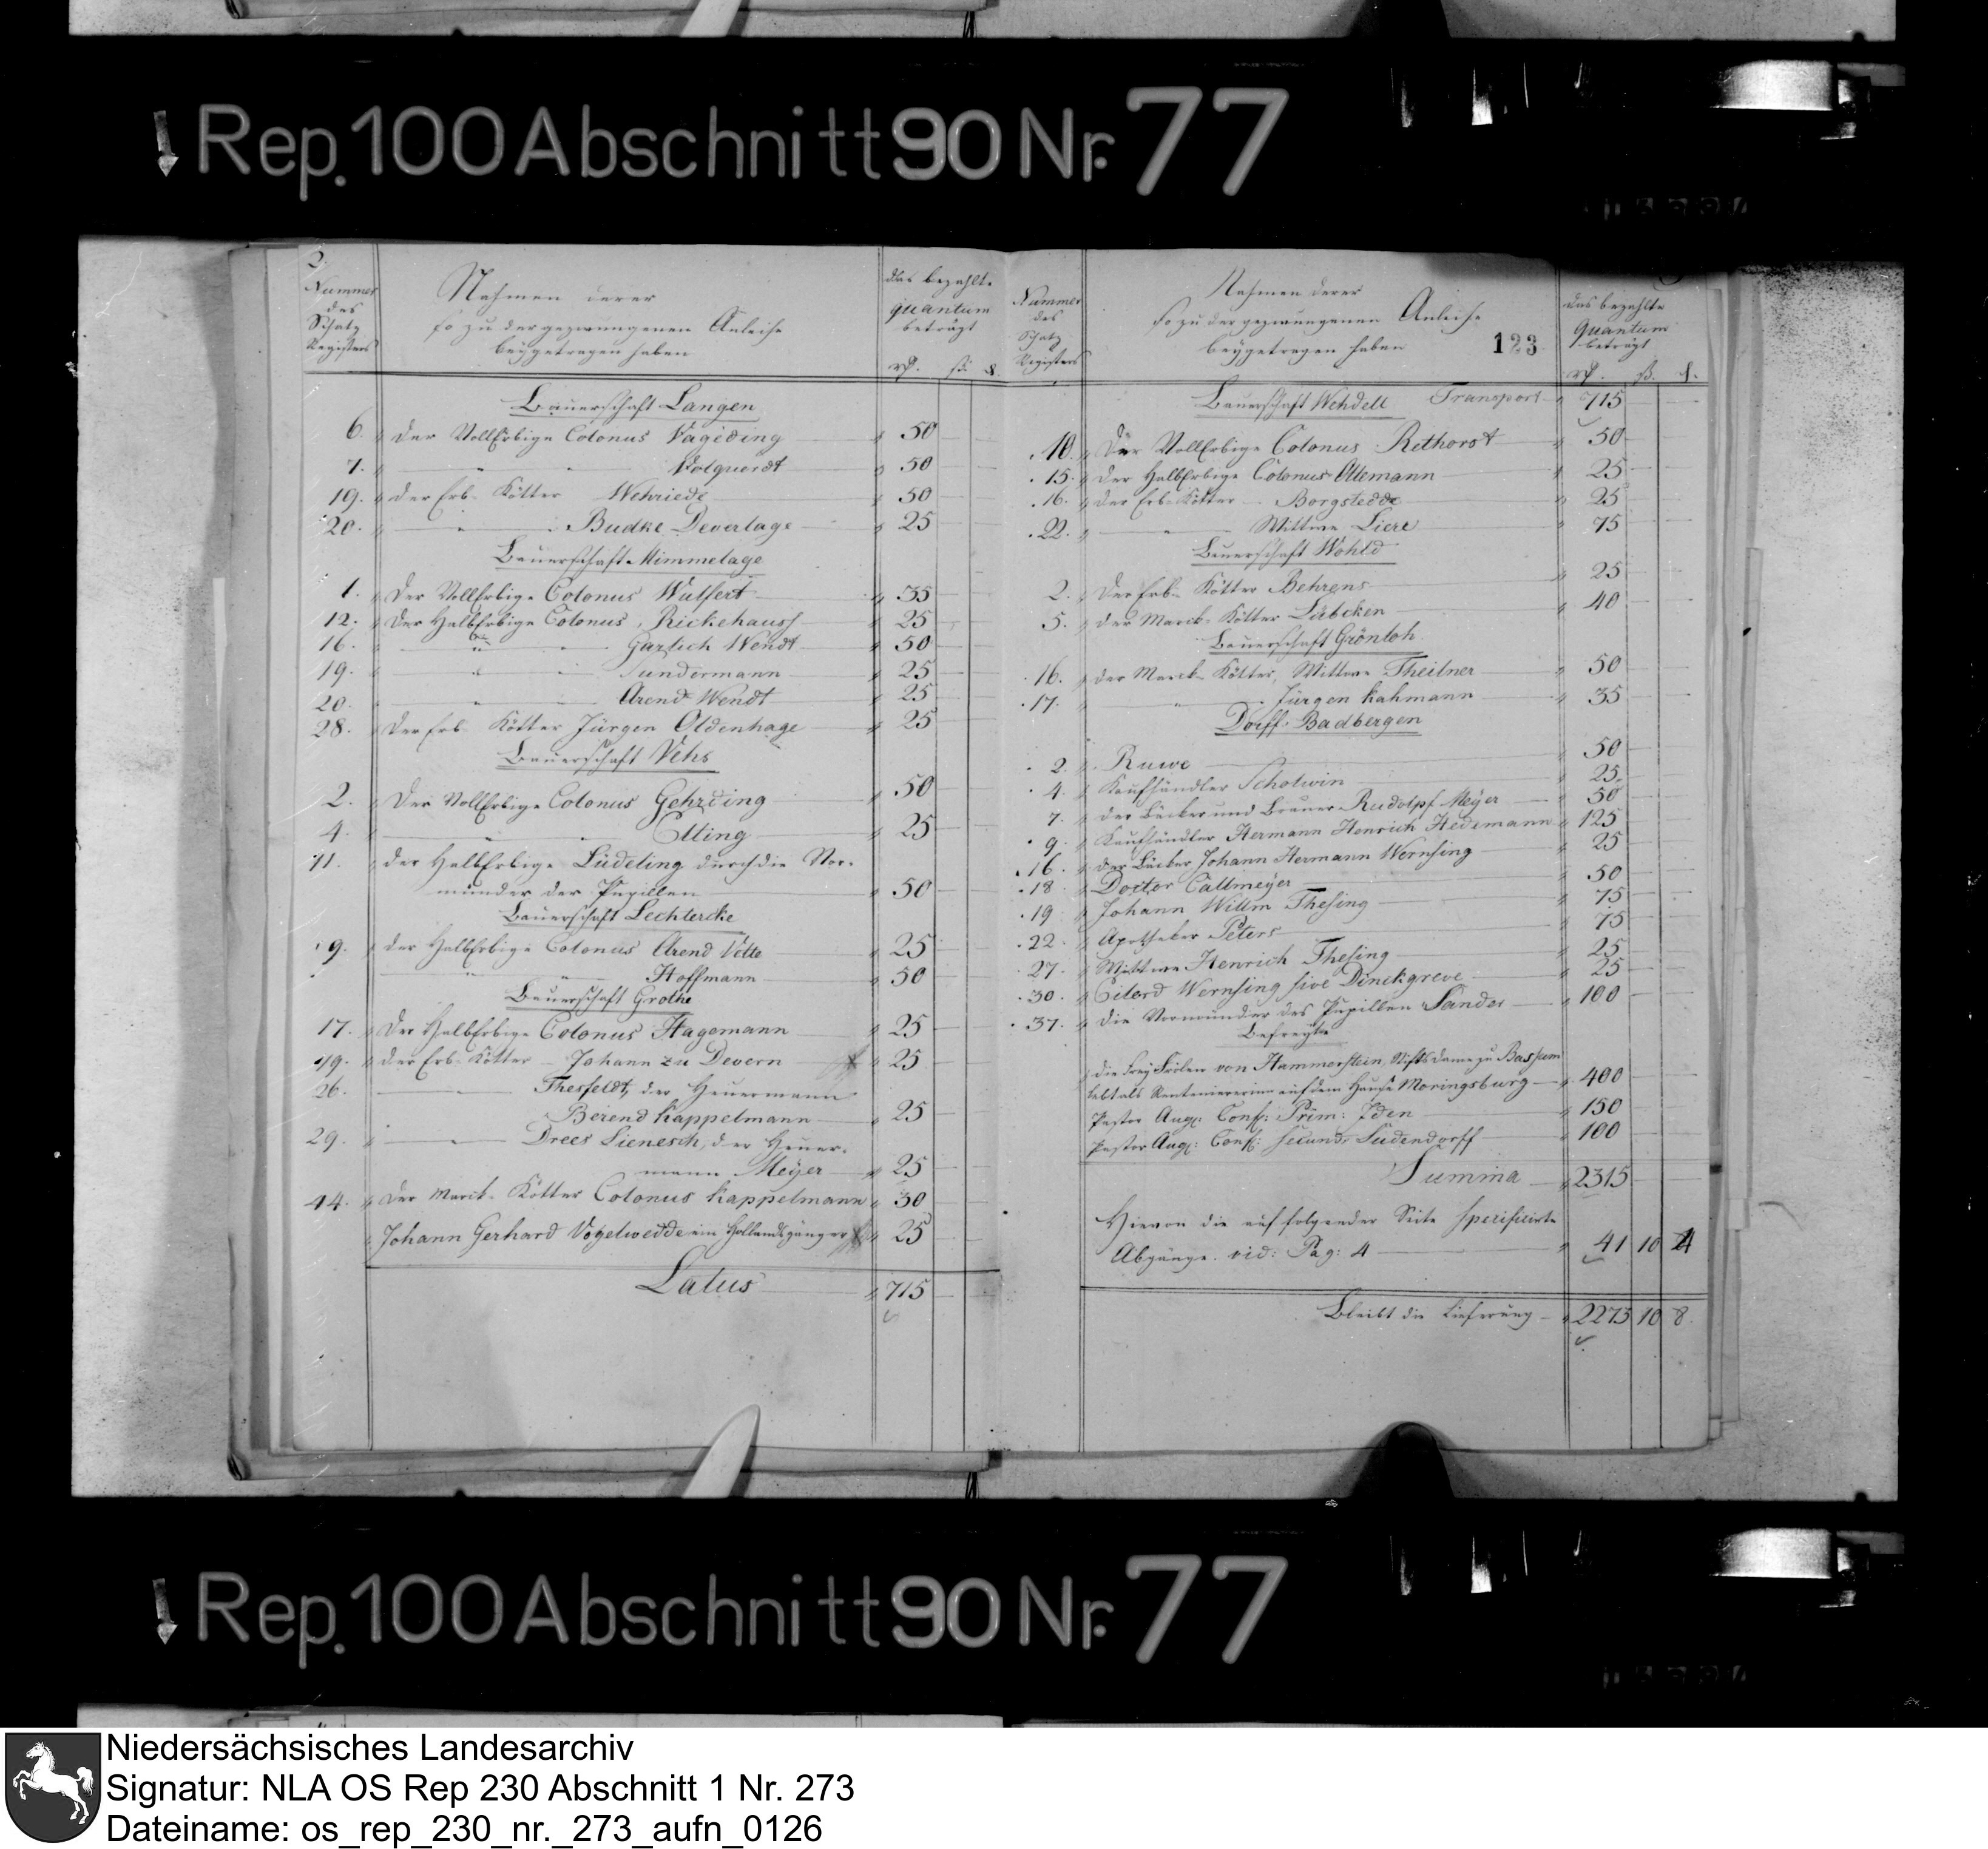 Rep. 100 Abschnitt 90 Nr. 77
2
Nummer
des
Schatz
Registers
Nahmen derer
so zu der gezwungenen Anleihe
beygetragen haben
das bezahlte
quantum
beträgt
rth. ß. d.
Bauerschaft Langen
6. Der Vollerbige Colonus Vageding 50
7. " " Wolquardt 50
19. der Erb-Kötter Wehriede 50
20. " Budke Deverlage 25
Bauerschaft Mimmelage
1. Der Vollerbige Colonus Wulfert 35
12. Der Halberbige Colonus, Rickehauss 25
16. " Garlich Wendt 50
19. " Sundermann 25
20. Arend Wendt 25
28. der Erb-Kötter Jürgen Oldenhage 25
Bauerschaft Vehs
2. Der Vollerbige Colonus Gehrding 50
4. " Elting 25
11. der Halberbige Lüdeling durch die Vor-
münder der Pupillen 50
Bauerschaft Lechtercke
9. der Halberbige Colonus Arend Votte 25
" " Hoffmann 50
Bauerschaft Grothe
17. Der Halberbige Colonus Hagemann 25
19. der Erb-Kötter Johann zu Devern 25
26. Thesfeldt, der Heuermann
Berend Kappelmann 25
29. Drees Lienesch, der Heuer-
mann Meÿer 25
44. der Marck-Kötter Colonus Kappelmann 30
Johann Gerhard Vogelwedde ein Hollandsgänger 25
Latus 715
Nummer
des
Schatz
Registers
Nahmen derer
so zu der gezwungenen Anleihe
beygetragen haben
123
das bezahlte
quantum
beträgt
rth. ß. d.
Bauerschaft Wehdell Transport 715
10. Der Vollerbige Colonus Rethorst 50
15. der Halberbige Colonus Ottemann 25
16. der Erb-Kötter Borgstedde 25
22. " Wittwe Liere 75
Bauerschaft Wohld
2. Der Erb-Kötter Behrens 25
5. der Marck-Kötter Lübcken 40
Bauerschaft Grönloh
16. der Marck-Kötter, Wittwe Theilner 50
17. " Jürgen Kahmann 35
Dorff Badbergen
2. Ruwe 50
4. Kaufhändler Scholwin 25
7. der Bäcker und Brauer Rudolpf Meÿer 50
9. Kaufhändler Hermann Henrich Hedemann 125
16. der Bäcker Johann Hermann Wernsing 25
18. Doctor Callmeÿer 50
19. Johann Willm Thesing 75
22. Apotheker Peters 75
27. Wittwe Henrich Thesing 25
30. Eilerd Wernsing sive Dinckgreve 25
37. die Vormünder des Pupillen Sander 100
Befreyte
die Frey Frölen von Hammerstein, Stiftsdame zu Bassum
lebt als Rentenirerinn auf dem Hause Moringsburg 400
Pastor Aug: Conf: Prim: Iden 150
Pastor Aug: Conf: secund: Südendorff 100
Summa 2315
Hievon die auf folgender Seite specificirte
Abgänge. vid: Pag: 4 41 10 4
Bleibt die Lieferung 2273 10 8
Rep. 100 Abschnitt 90 Nr. 77
Niedersächsisches Landesarchiv
Signatur: NLA OS Rep 230 Abschnitt 1 Nr. 273
Dateiname: os_rep_230_nr._273_aufn_0126